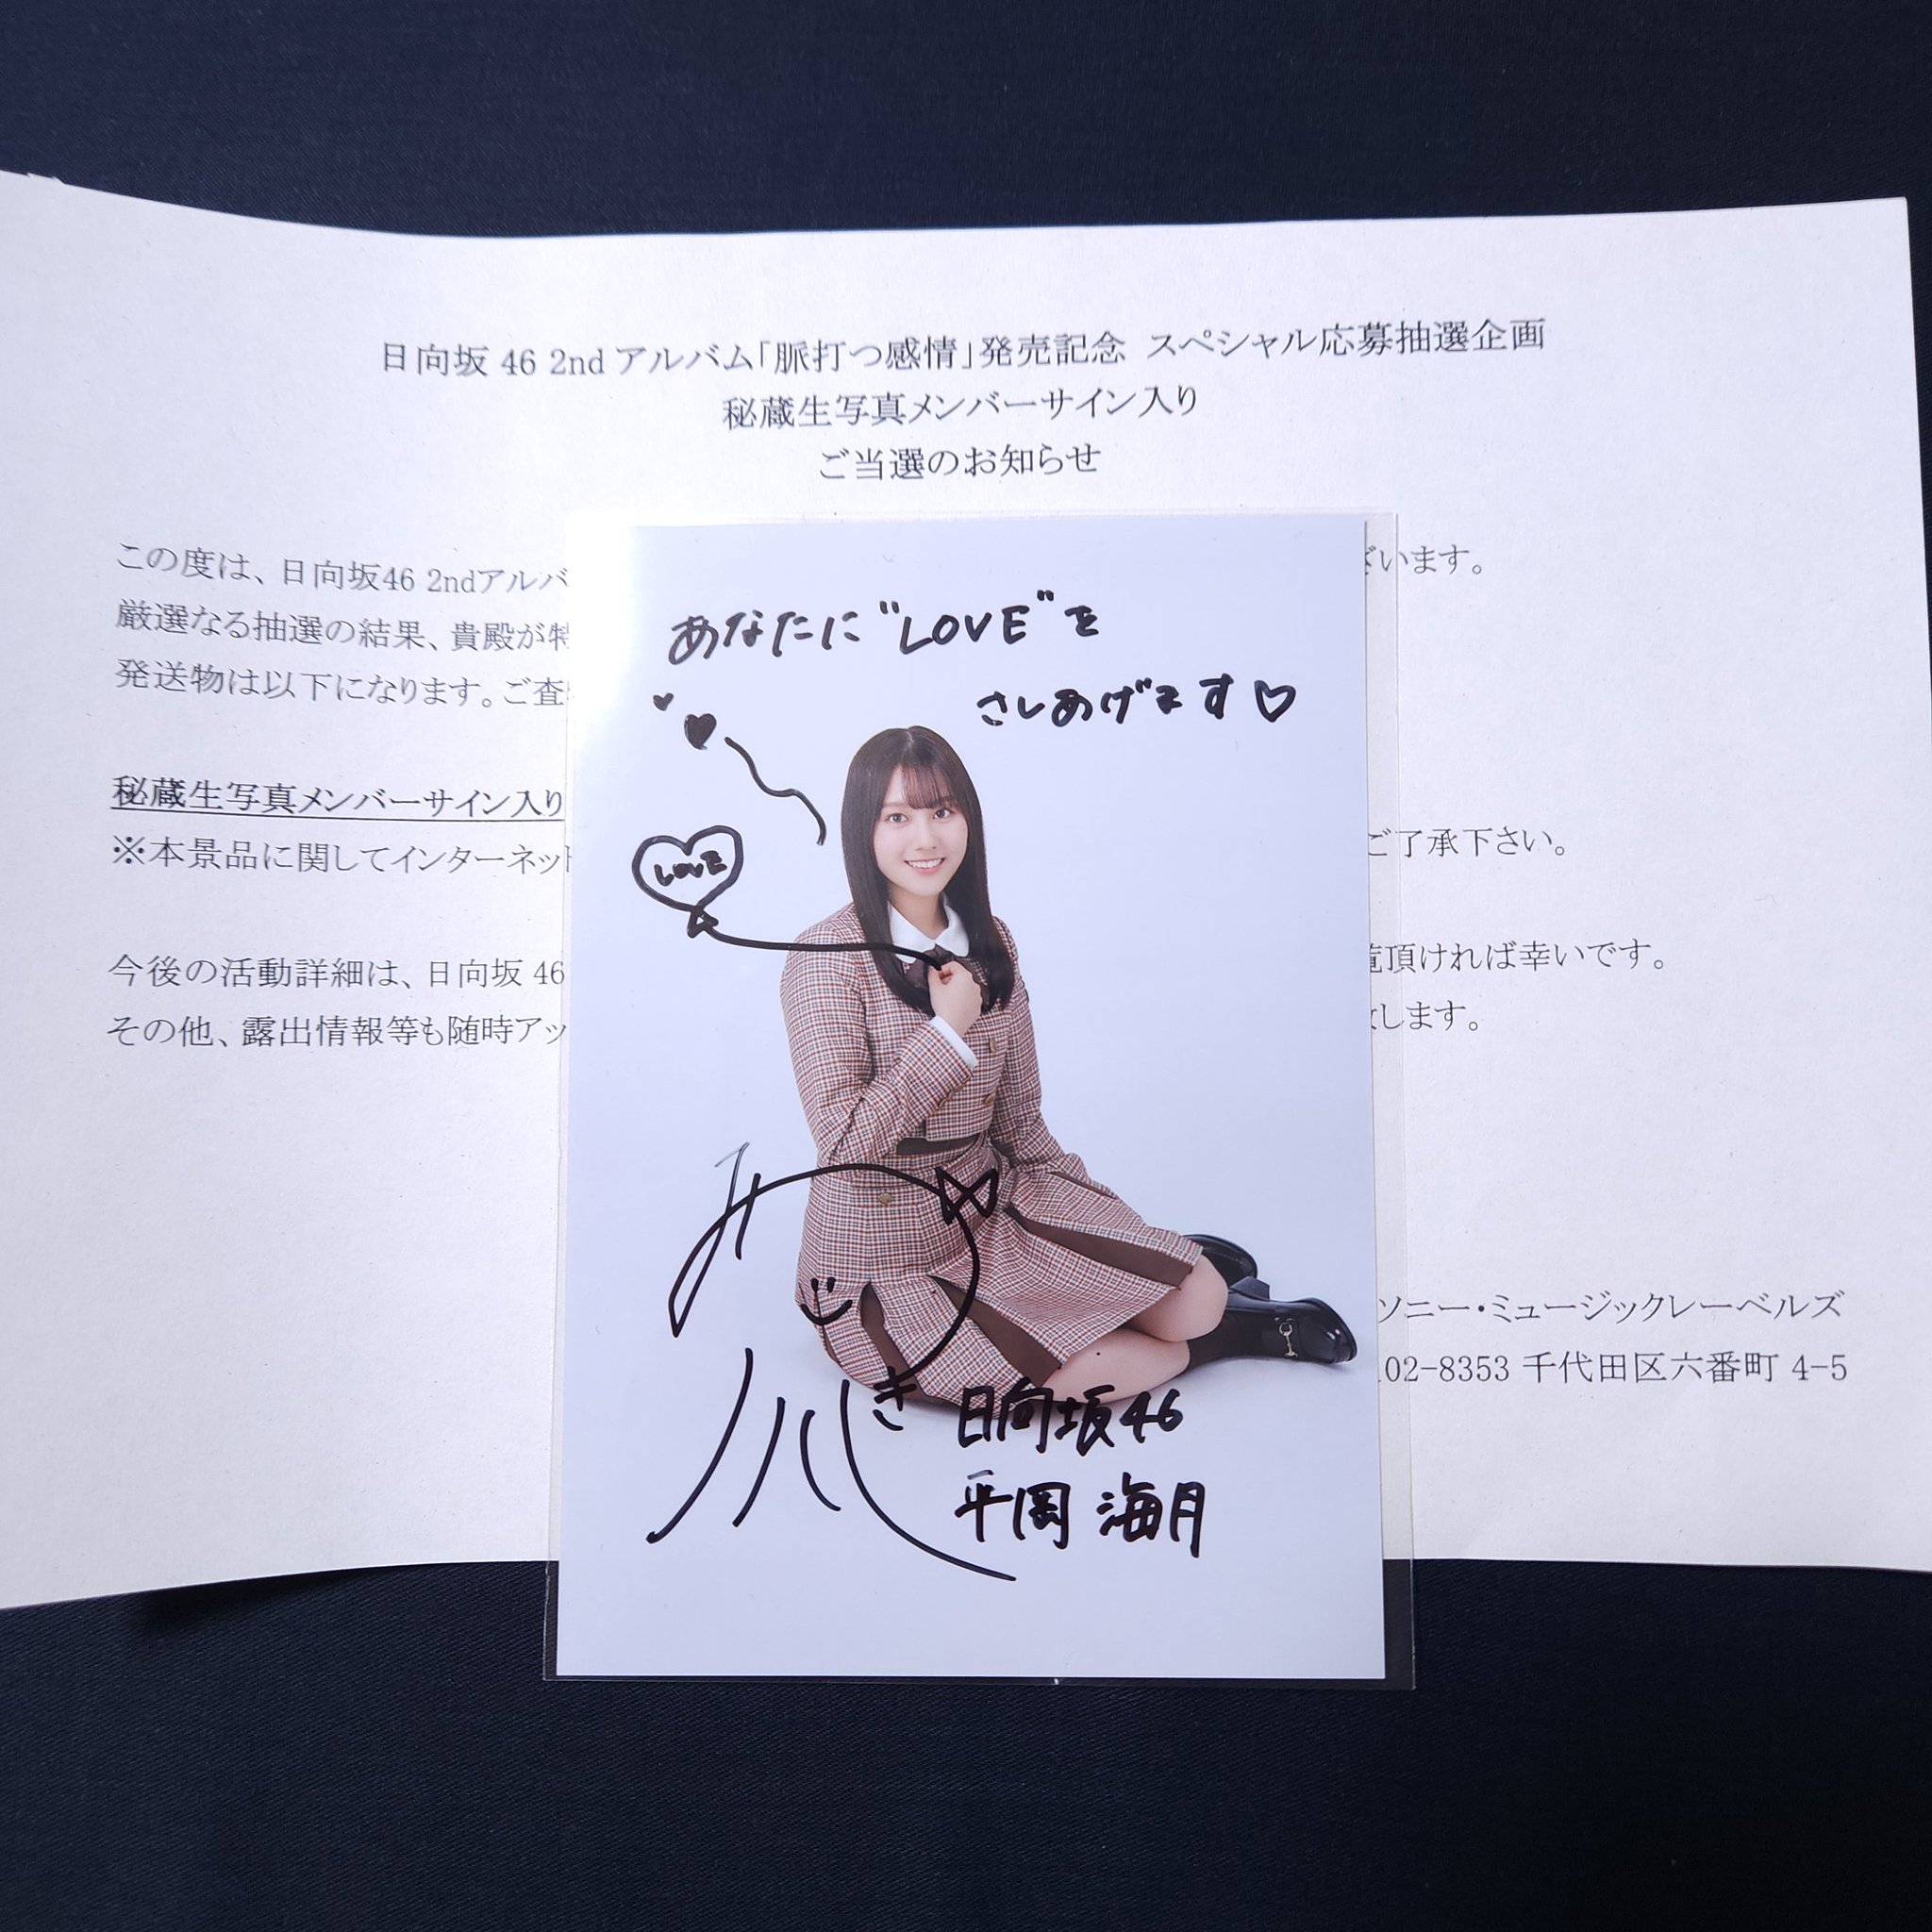 日向坂 46 2nd アルバム「脈打つ感情」発売記念 スペシャル応募抽選企画
秘蔵生写真メンバーサイン入り
ご当選のお知らせ
この度は、日向坂46 2ndアルバ
ざいます。
厳選なる抽選の結果、貴殿が特
発送物は以下になります。ご査
秘蔵生写真メンバーサイン入り
※本景品に関してインターネット
ご了承下さい。
今後の活動詳細は、日向坂 46
頂ければ幸いです。
その他、露出情報等も随時アッ
します。
ソニー・ミュージックレーベルズ
02-8353 千代田区六番町 4-5
あなたに"LOVE"を
さしあげます♡
LOVE
日向坂46
平岡 海月